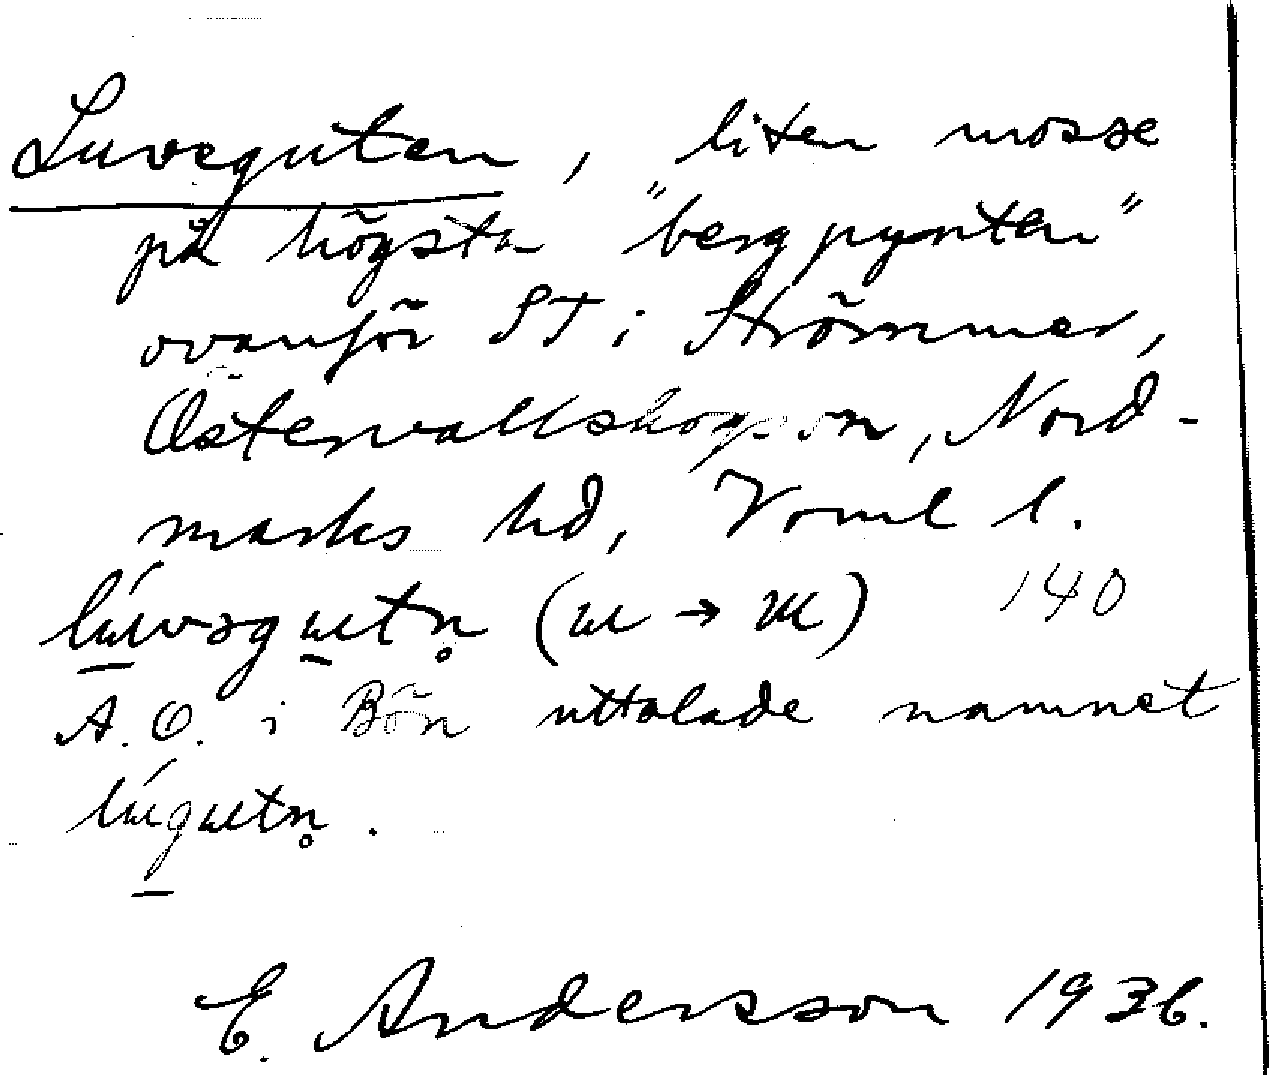 Luveguten, liten mosse
på högsta "bergpynten"
ovanför ST i Strömmer,
Östervallskogs sn, Nord-
marks hd, Värml l.
(ɯ → ɯ) 140
A. O. i Bön uttalade namnet
E. Andersson 1936.